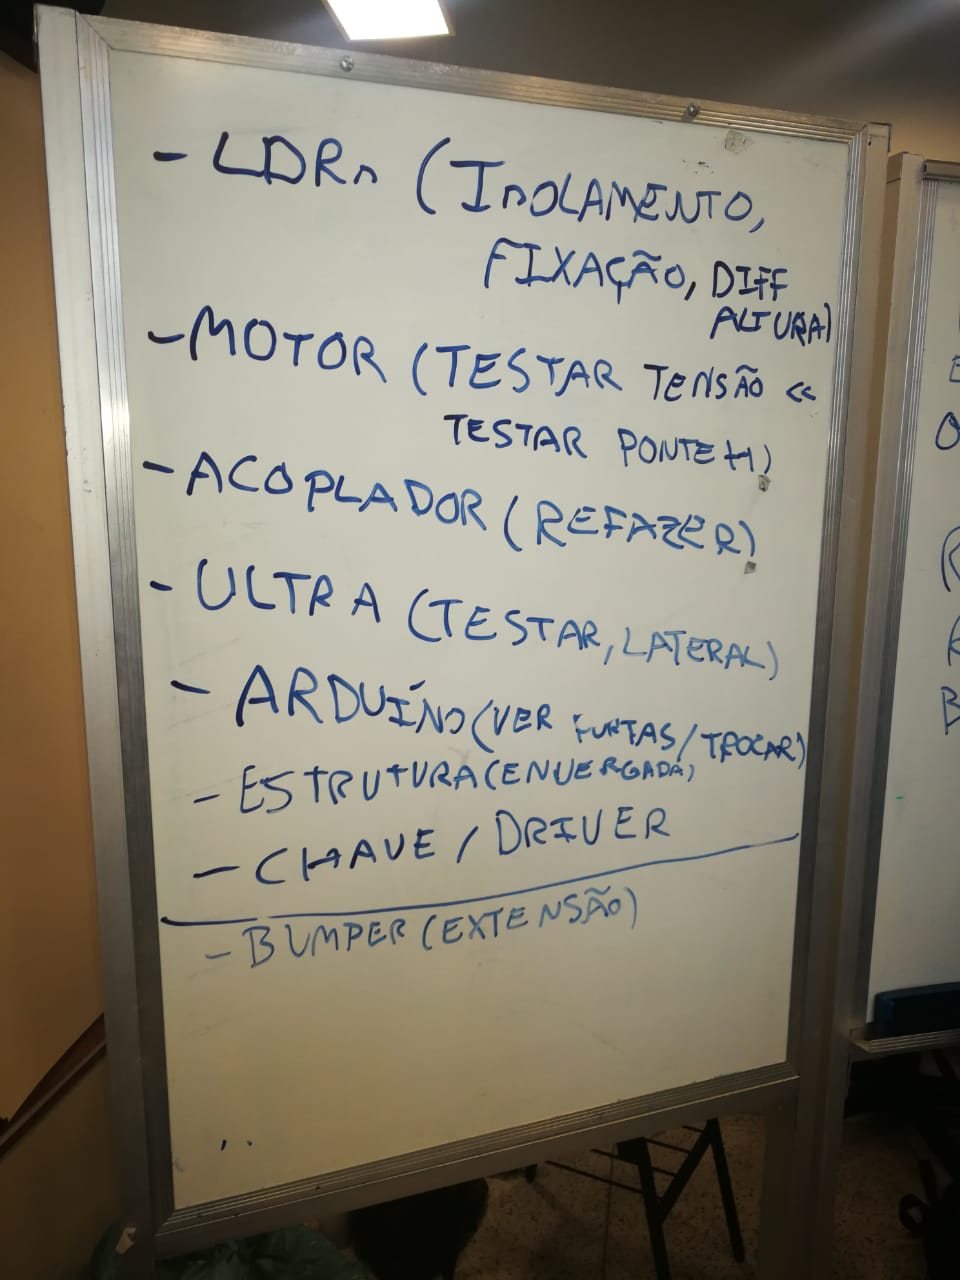 - LDRs (ISOLAMENTO,
FIXAÇÃO, DIFF
ALTURA)
- MOTOR (TESTAR TENSÃO <<
TESTAR PONTE H)
- ACOPLADOR (REFAZER)
- ULTRA (TESTAR, LATERAL)
- ARDUÍNO (VER /TROCAR)
- ESTRUTURA (ENVERGADA)
- CHAVE / DRIVER
- BUMPER (EXTENSÃO)